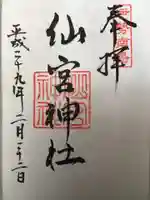 奉拝
仙宮神社
平成二十九年二月二十二日